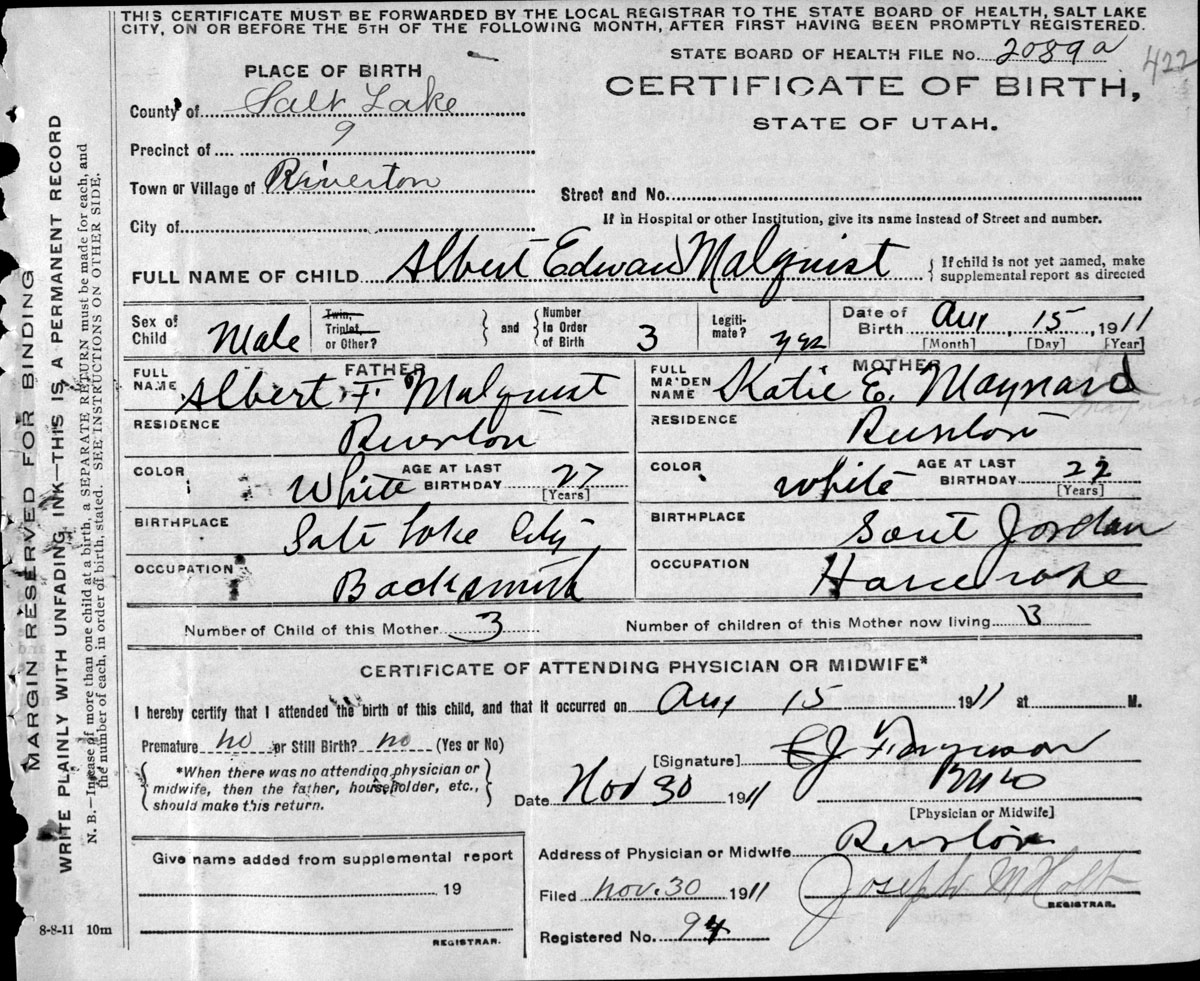 THIS CERTIFICATE MUST BE FORWARDED BY THE LOCAL REGISTRAR TO THE STATE BOARD OF HEALTH, SALT LAKE
CITY, ON OR BEFORE THE 5TH OF THE FOLLOWING MONTH, AFTER FIRST HAVING BEEN PROMPTLY REGISTERED.
STATE BOARD OF HEALTH FILE No. 2089a 422
PLACE OF BIRTH
CERTIFICATE OF BIRTH,
STATE OF UTAH.
County of Salt Lake
Precinct of 9
Town or Village of Riverton
Street and No.
If in Hospital or other Institution, give its name instead of Street and number.
City of
FULL NAME OF CHILD Albert Edwan Malquist
If child is not yet named, make
supplemental report as directed
Sex of Child Male
Twin, Triplet, or Other?
and
Number in Order of Birth 3
Legiti-mate? yes
Date of Birth Aug, 15, 1911
[Month] [Day] [Year]
FATHER
FULL NAME Albert F. Malquist
RESIDENCE Riverton
COLOR White
AGE AT LAST BIRTHDAY 27
[Years]
BIRTHPLACE Salt Lake City
OCCUPATION Backsmith
MOTHER
FULL MAIDEN NAME Katie E. Maynard
Maynard
RESIDENCE Riverton
COLOR White
AGE AT LAST BIRTHDAY 22
[Years]
BIRTHPLACE Sout Jordan
OCCUPATION
Number of Child of this Mother 3
Number of children of this Mother now living 3
CERTIFICATE OF ATTENDING PHYSICIAN OR MIDWIFE*
I hereby certify that I attended the birth of this child, and that it occurred on Aug 15 1911 at M.
Premature no or Still Birth? no (Yes or No)
*When there was no attending physician or
midwife, then the father, householder, etc.,
should make this return.
[Signature]
Date Nov 30 1911
[Physician or Midwife]
Give name added from supplemental report
19
REGISTRAR.
Address of Physician or Midwife Riverton
Filed Nov. 30 1911
Joseph M Holt
REGISTRAR.
Registered No. 94
8-8-11 10m
MARGIN RESERVED FOR BINDING
WRITE PLAINLY WITH UNFADING INK—THIS IS A PERMANENT RECORD
N. B.—In case of more than one child at a birth, a SEPARATE RETURN must be made for each, and
the number of each, in order of birth, stated. SEE INSTRUCTIONS ON OTHER SIDE.